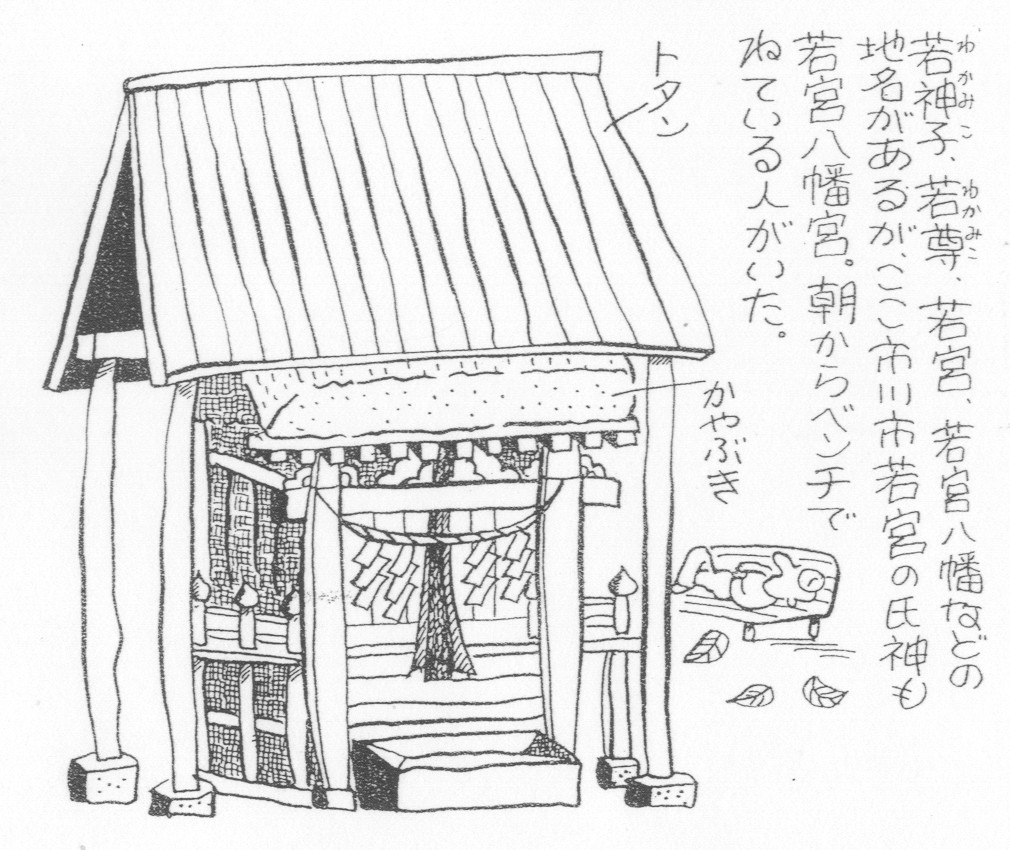 若神子、若尊、若宮、若宮八幡などの
わかみこ
わかみこ
地名があるが、ここ市川市若宮の氏神も
若宮八幡宮。朝からベンチで
ねている人がいた。
トタン
かやぶき